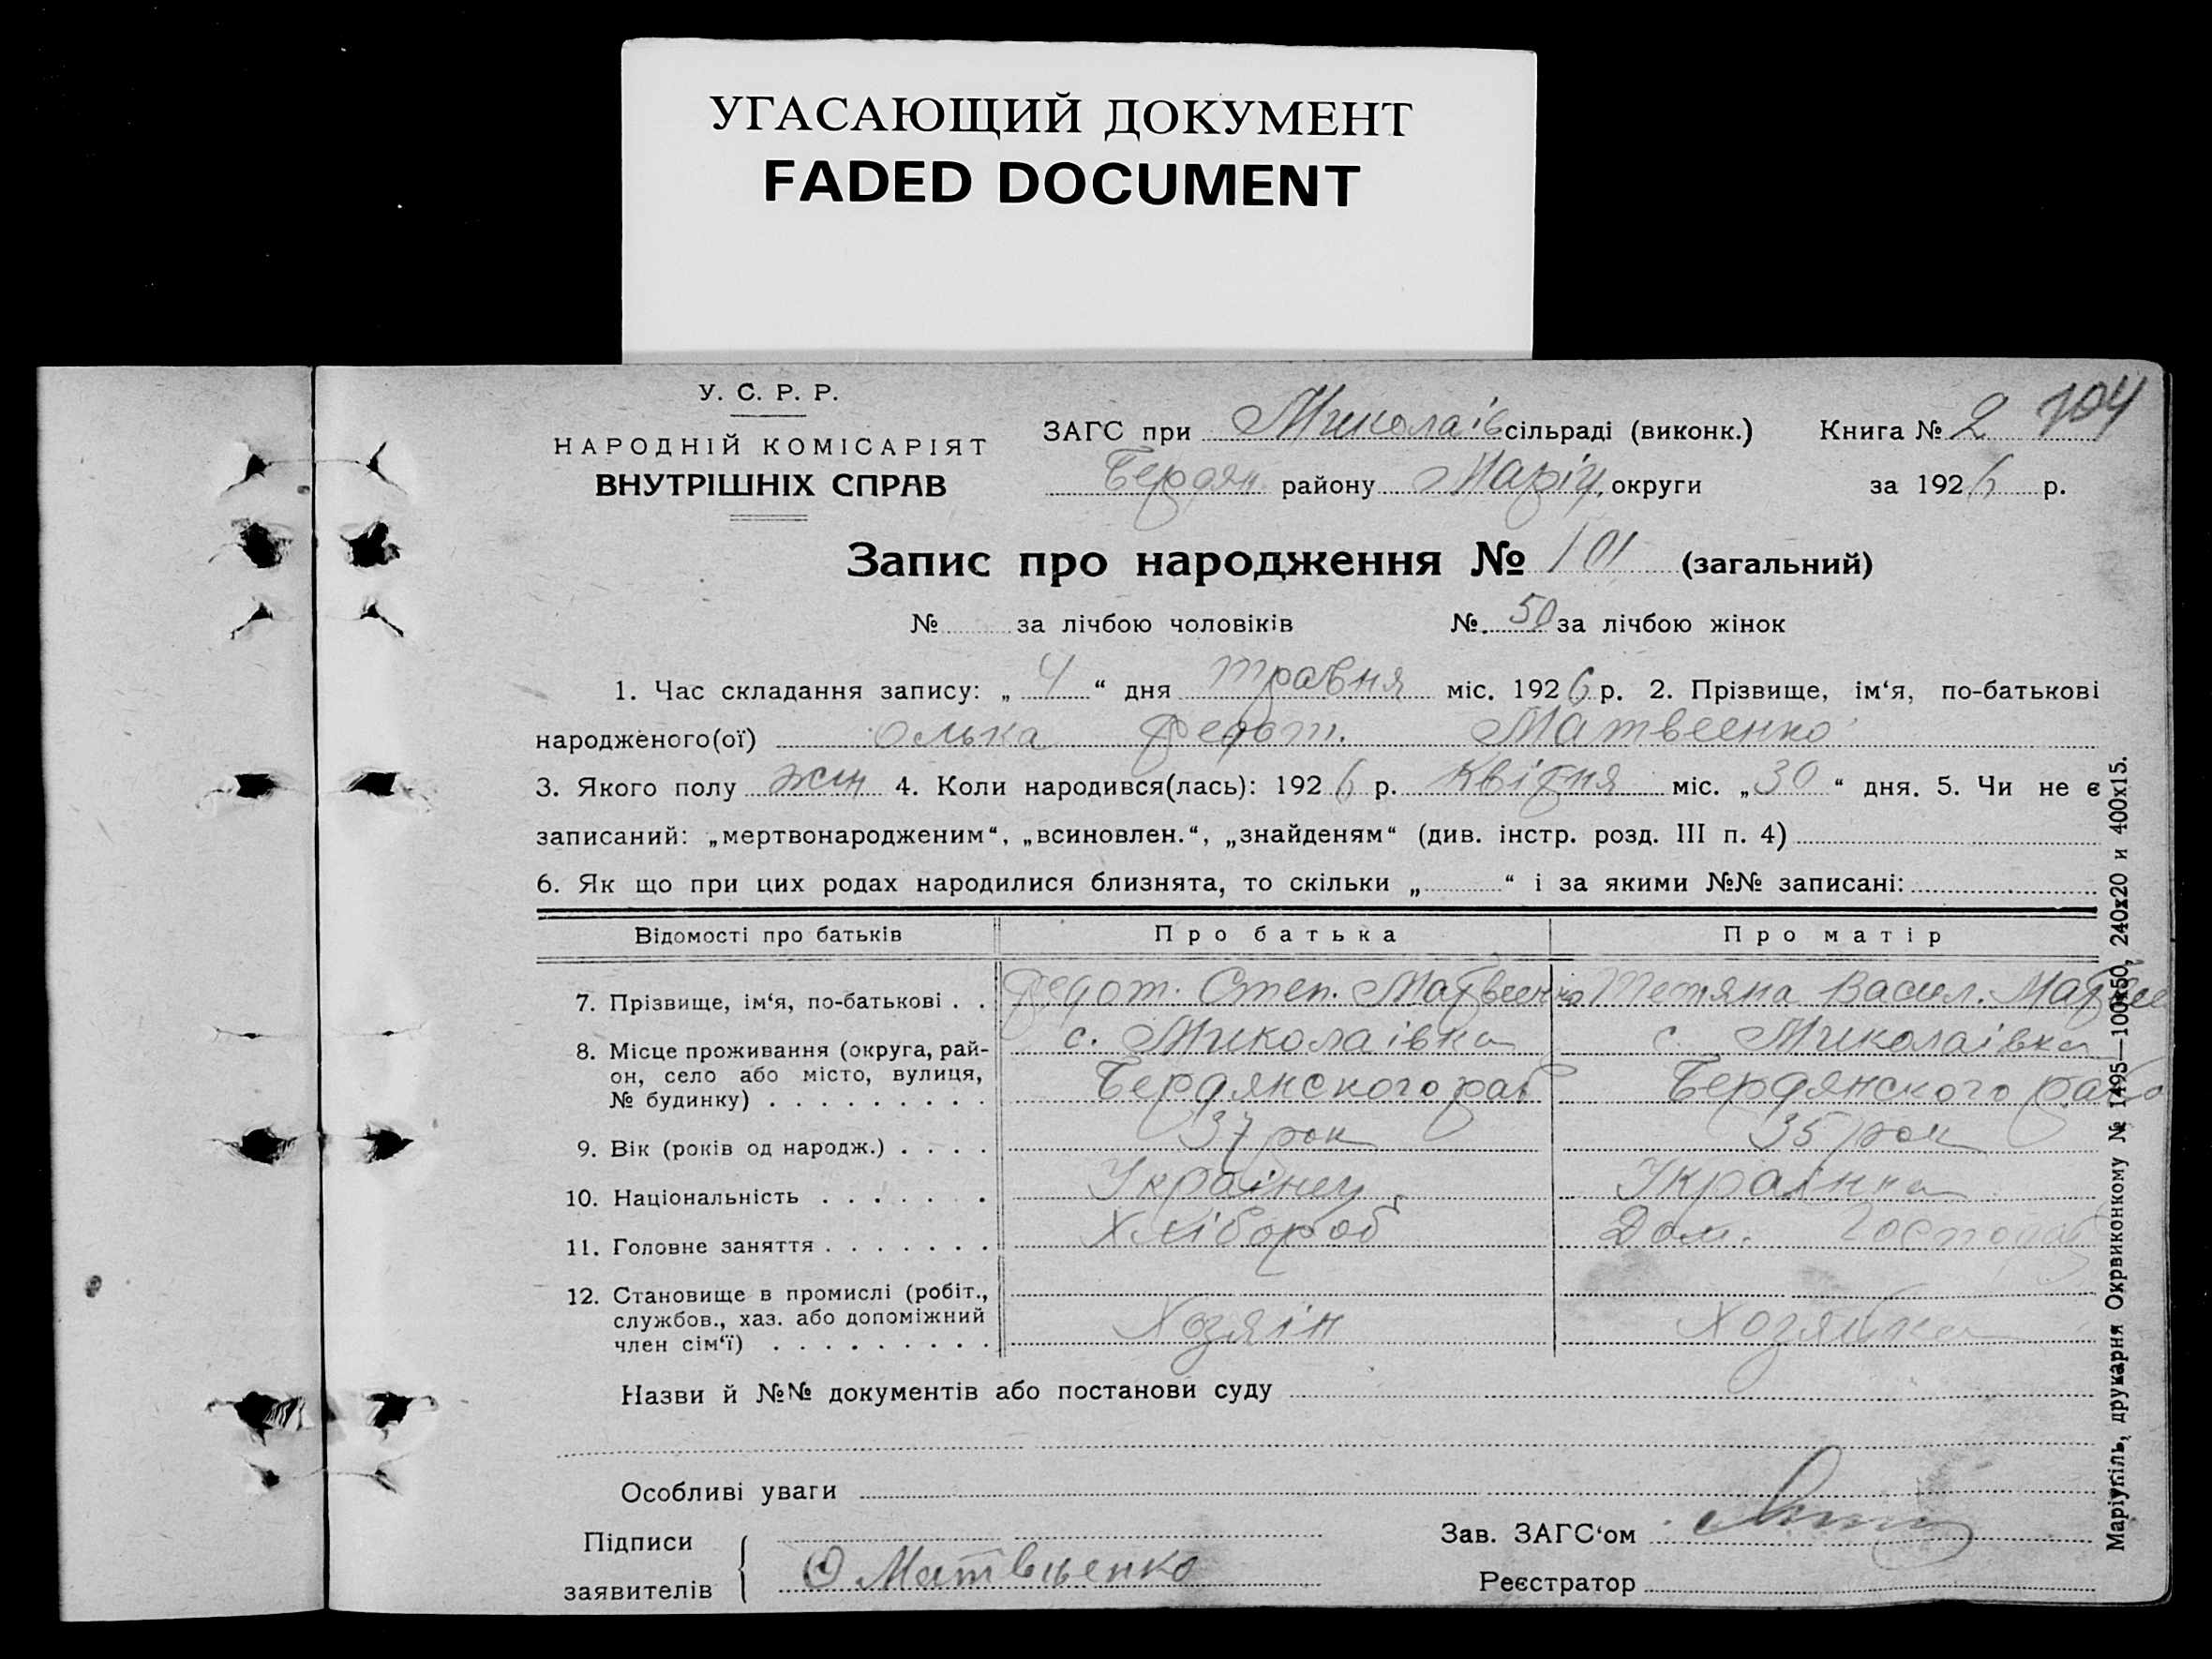 УГАСАЮЩИЙ ДОКУМЕНТ
FADED DOCUMENT
У. С. Р. Р.
НАРОДНІЙ КОМІСАРІЯТ
ВНУТРІШНІХ СПРАВ
ЗАГС при Миколаїв сільраді (виконк.) Книга № 2 104
Бердян району Маріу. округи за 1926 р.
Запис про народження № 101 (загальний)
№ за лічбою чоловіків №. 50 за лічбою жінок
1. Час складання запису: „ 4 “ дня травня міс. 1926 р. 2. Прізвище, ім‘я, по-батькові
народженого(ої) Олька Федот. Матвеенко
3. Якого полу жін 4. Коли народився(лась): 1926 р. Квітня міс. „30“ дня. 5. Чи не є
записаний: „мертвонародженим“, „всиновлен.“, „знайденям“ (див. інстр. розд. III п. 4)
6. Як що при цих родах народилися близнята, то скільки „ “ і за якими №№ записані:
Відомості про батьків Про батька Про матір
7. Прізвище, ім‘я, по-батькові . . Федот. Степ. Матвеенко Тетяна Васил. Матвее
8. Місце проживання (округа, рай- с. Миколаівка с. Миколаівка
он, село або місто, вулиця, Бердянского рай Бердянского райо
№ будинку) . . . . . . . . .
9. Вік (років од народж.) . . . . 37 рок 35 рок
10. Національність . . . . . . . Українец Українка
11. Головне заняття . . . . . . . Хлібороб Дом. Господар
12. Становище в промислі (робіт.,
службов., хаз. або допоміжний Хозяін Хозяйка
член сім‘ї) . . . . . . . . .
Назви й №№ документів або постанови суду
Особливі уваги
Підписи Зав. ЗАГС‘ом
заявителів Ф Матвіенко Реєстратор
Маріупіль, друкарня Окрвиконкому № 1495—100х50, 240х20 и 400х15.